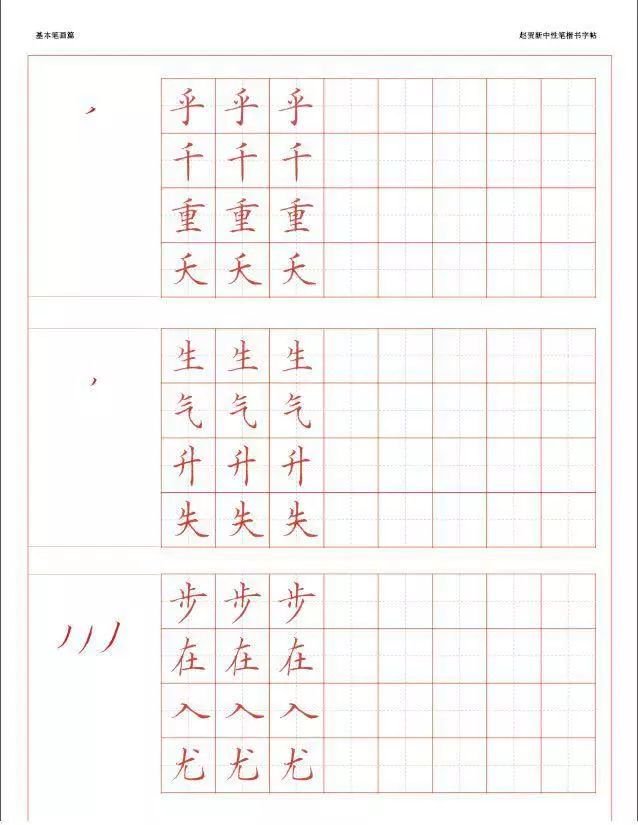 基本笔画篇 赵贺新中性笔楷书字帖
乎 乎 乎
千 千 千
重 重 重
夭 夭 夭
生 生 生
气 气 气
升 升 升
失 失 失
步 步 步
在 在 在
入 入 入
尤 尤 尤